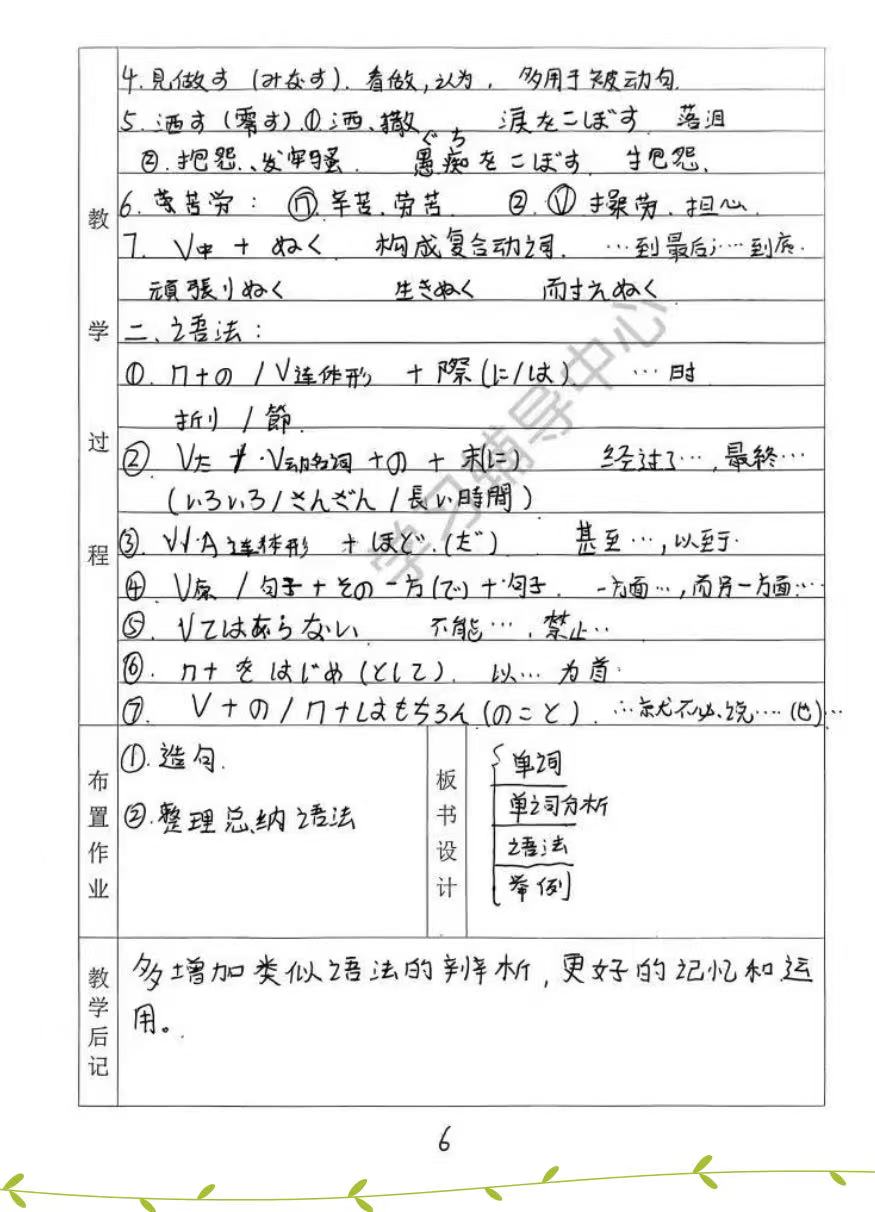 4. 見做す (みなす). 看做,认为. 多用于被动句.
5. 洒す (零す) ① 洒、撒 涙をこぼす 落泪
ぐち
②. 抱怨、发牢骚 愚痴をこぼす 抱怨、
6. 苦労: ⓝ. 辛苦. 劳苦. ②. Ⓥ 操劳. 担心.
7. V中 + ぬく 构成复合动词. …到最后;…到底.
頑張りぬく 生きぬく 耐えぬく
二、语法:
①. n+の / V连体形 + 際(に/は) …时
折り / 節.
② Vた / V动名词 + の + 末(に) 经过了…, 最終…
(いろいろ/さんざん/長い時間)
③. V·A连体形 + ほど.(だ) 甚至…,以至于.
④ V原 / 句子 + その一方(で) + 句子. 一方面…,而另一方面…
⑤. Vてはならない 不能…, 禁止…
⑥. n+をはじめ(として). 以…为首.
⑦. V+の / n+はもちろん(のこと). …就不必说…(也)…
教学过程
①. 造句.
②. 整理总纳语法
布置作业
板书设计
单词
单词分析
语法
举例
教学后记
多增加类似语法的辨析,更好的记忆和运
用。
6
学习辅导中心